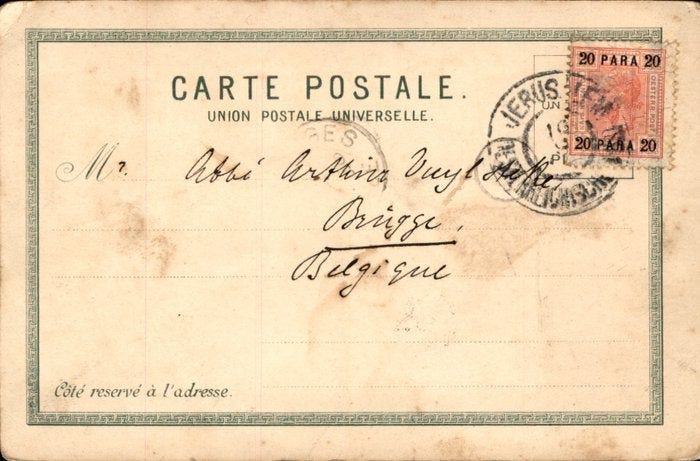 20 PARA 20
20 PARA 20
JERUSALEM
CARTE POSTALE.
UNION POSTALE UNIVERSELLE.
GES
Mr. Abbé Arthur
Brügge,
Belgique
Côté reservé à l'adresse.